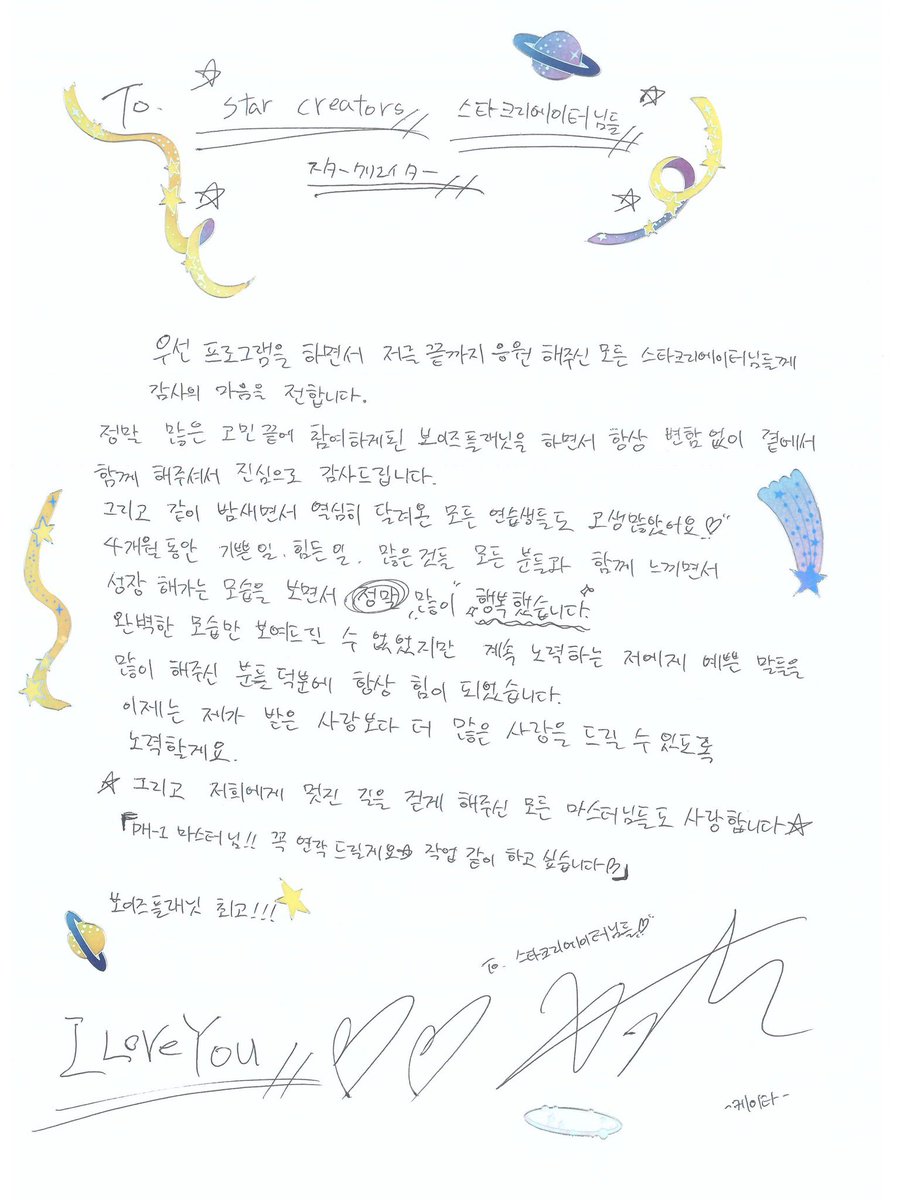 To. ☆ star creators 스타크리에이터님들 ☆
☆ スタークリエイター ☆
우선 프로그램을 하면서 저를 끝까지 응원 해주신 모든 스타크리에이터님들께
감사의 마음을 전합니다.
정막 많은 고민 끝에 참여하게된 보이즈플래닛을 하면서 항상 변함 없이 곁에서
함께 해주셔서 진심으로 감사드립니다.
그리고 같이 밤새면서 열심히 달려온 모든 연습생들도 고생많았어요♡
4개월 동안 기쁜일. 힘든일. 많은것들 모든 분들과 함께 느끼면서
성장 해가는 모습을 보면서 정막 많이 행복했습니다.
완벽한 모습만 보여드릴 수 없었지만 계속 노력하는 저에게 예쁜 말들을
많이 해주신 분들 덕분에 항상 힘이 되었습니다.
이제는 제가 받은 사랑보다 더 많은 사랑을 드릴 수 있도록
노력할게요.
☆ 그리고 저희에게 멋진 길을 걷게 해주신 모든 마스터님들도 사랑합니다☆
「매-1 마스터님!! 꼭 연락 드릴게요☆ 작업 같이 하고 싶습니다」
보이즈플래닛 최고!!!
To. 스타크리에이터님들♡
I Love You ♡♡
-케이타-